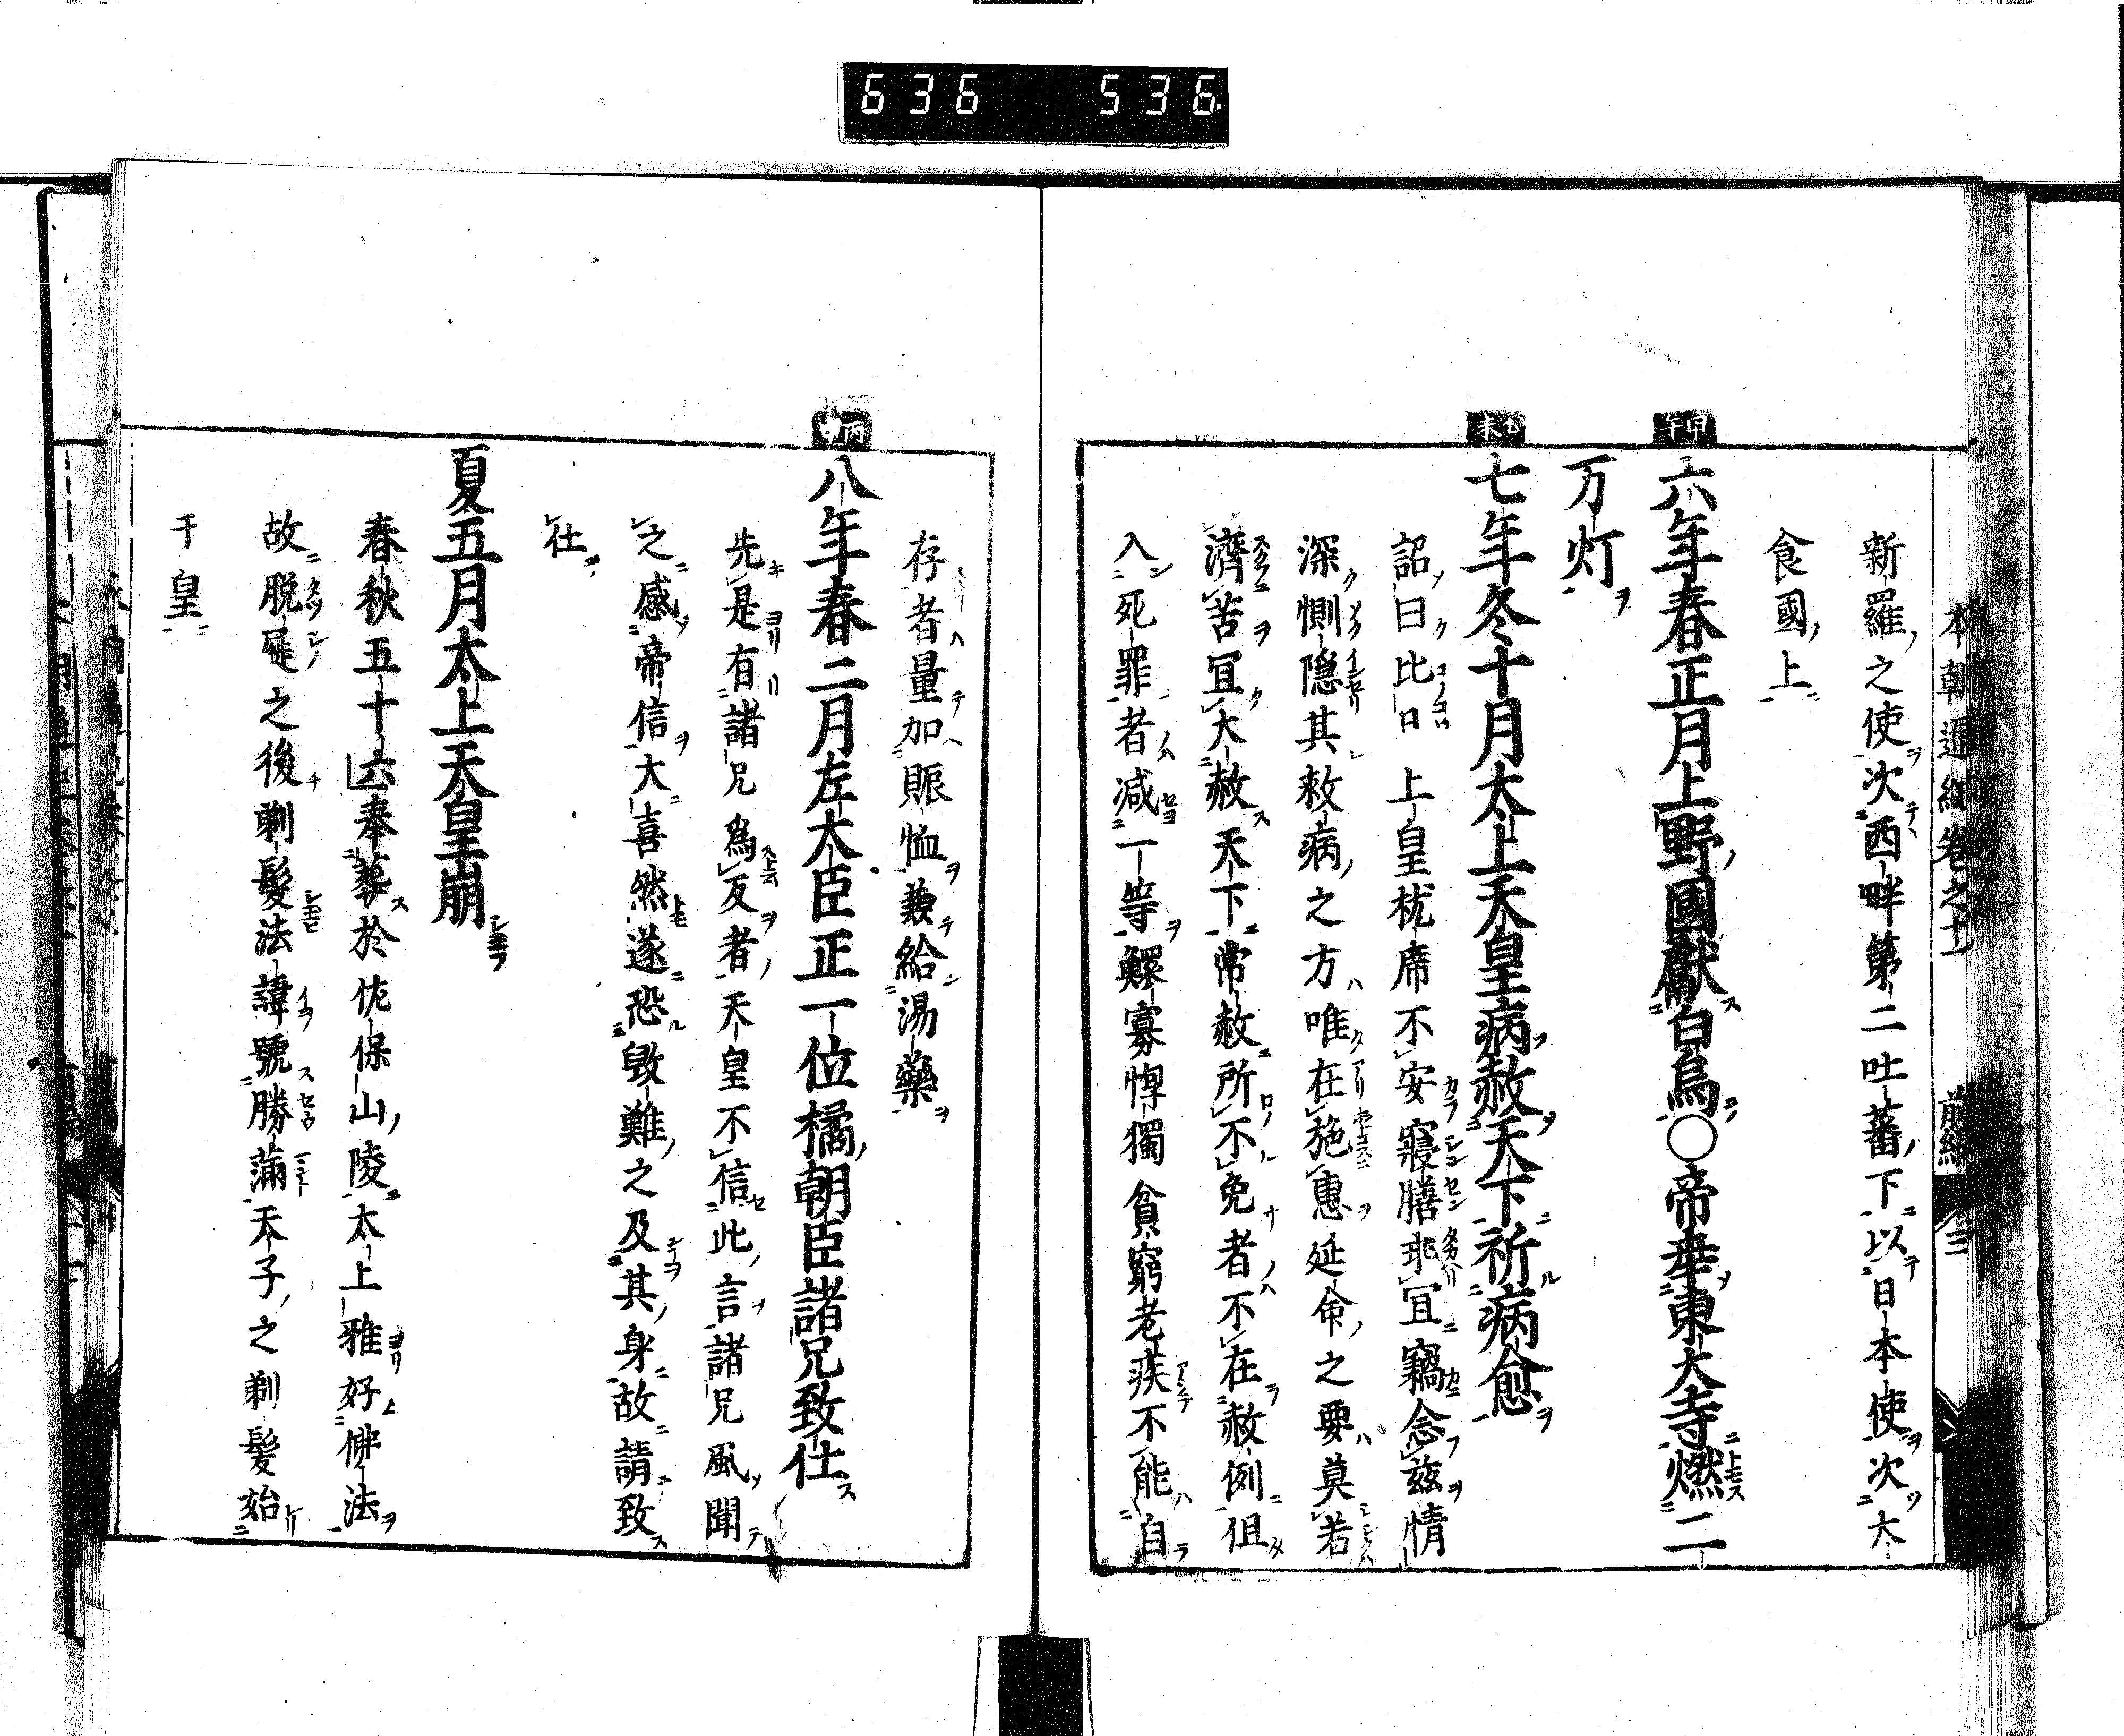 636 536
本朝通紀卷之十 前編
新羅之使次西畔第二吐蕃下以日本使次大
食國上
甲午
六年春正月上野國獻白烏〇帝幸東大寺燃二
万灯
乙未
七年冬十月太上天皇病赦天下祈病愈
詔曰比日上皇枕席不安寢膳乖宜竊念茲情
深惻隠其救病之方唯在施惠延命之要莫若
濟苦宜大赦天下常赦所不免者不在赦例但
入死罪者減一等鰥寡惸獨貧窮老疾不能自
存者量加賑恤兼給湯藥
丙申
八年春二月左大臣正一位橘朝臣諸兄致仕
先是有諸兄爲反者天皇不信此言諸兄風聞
之感帝信大喜然遂恐毀難之及其身故請致
仕
夏五月太上天皇崩
春秋五十六奉葬於佐保山陵太上雅好佛法
故脱屣之後剃髮法諱號勝滿天子之剃髮始
于皇